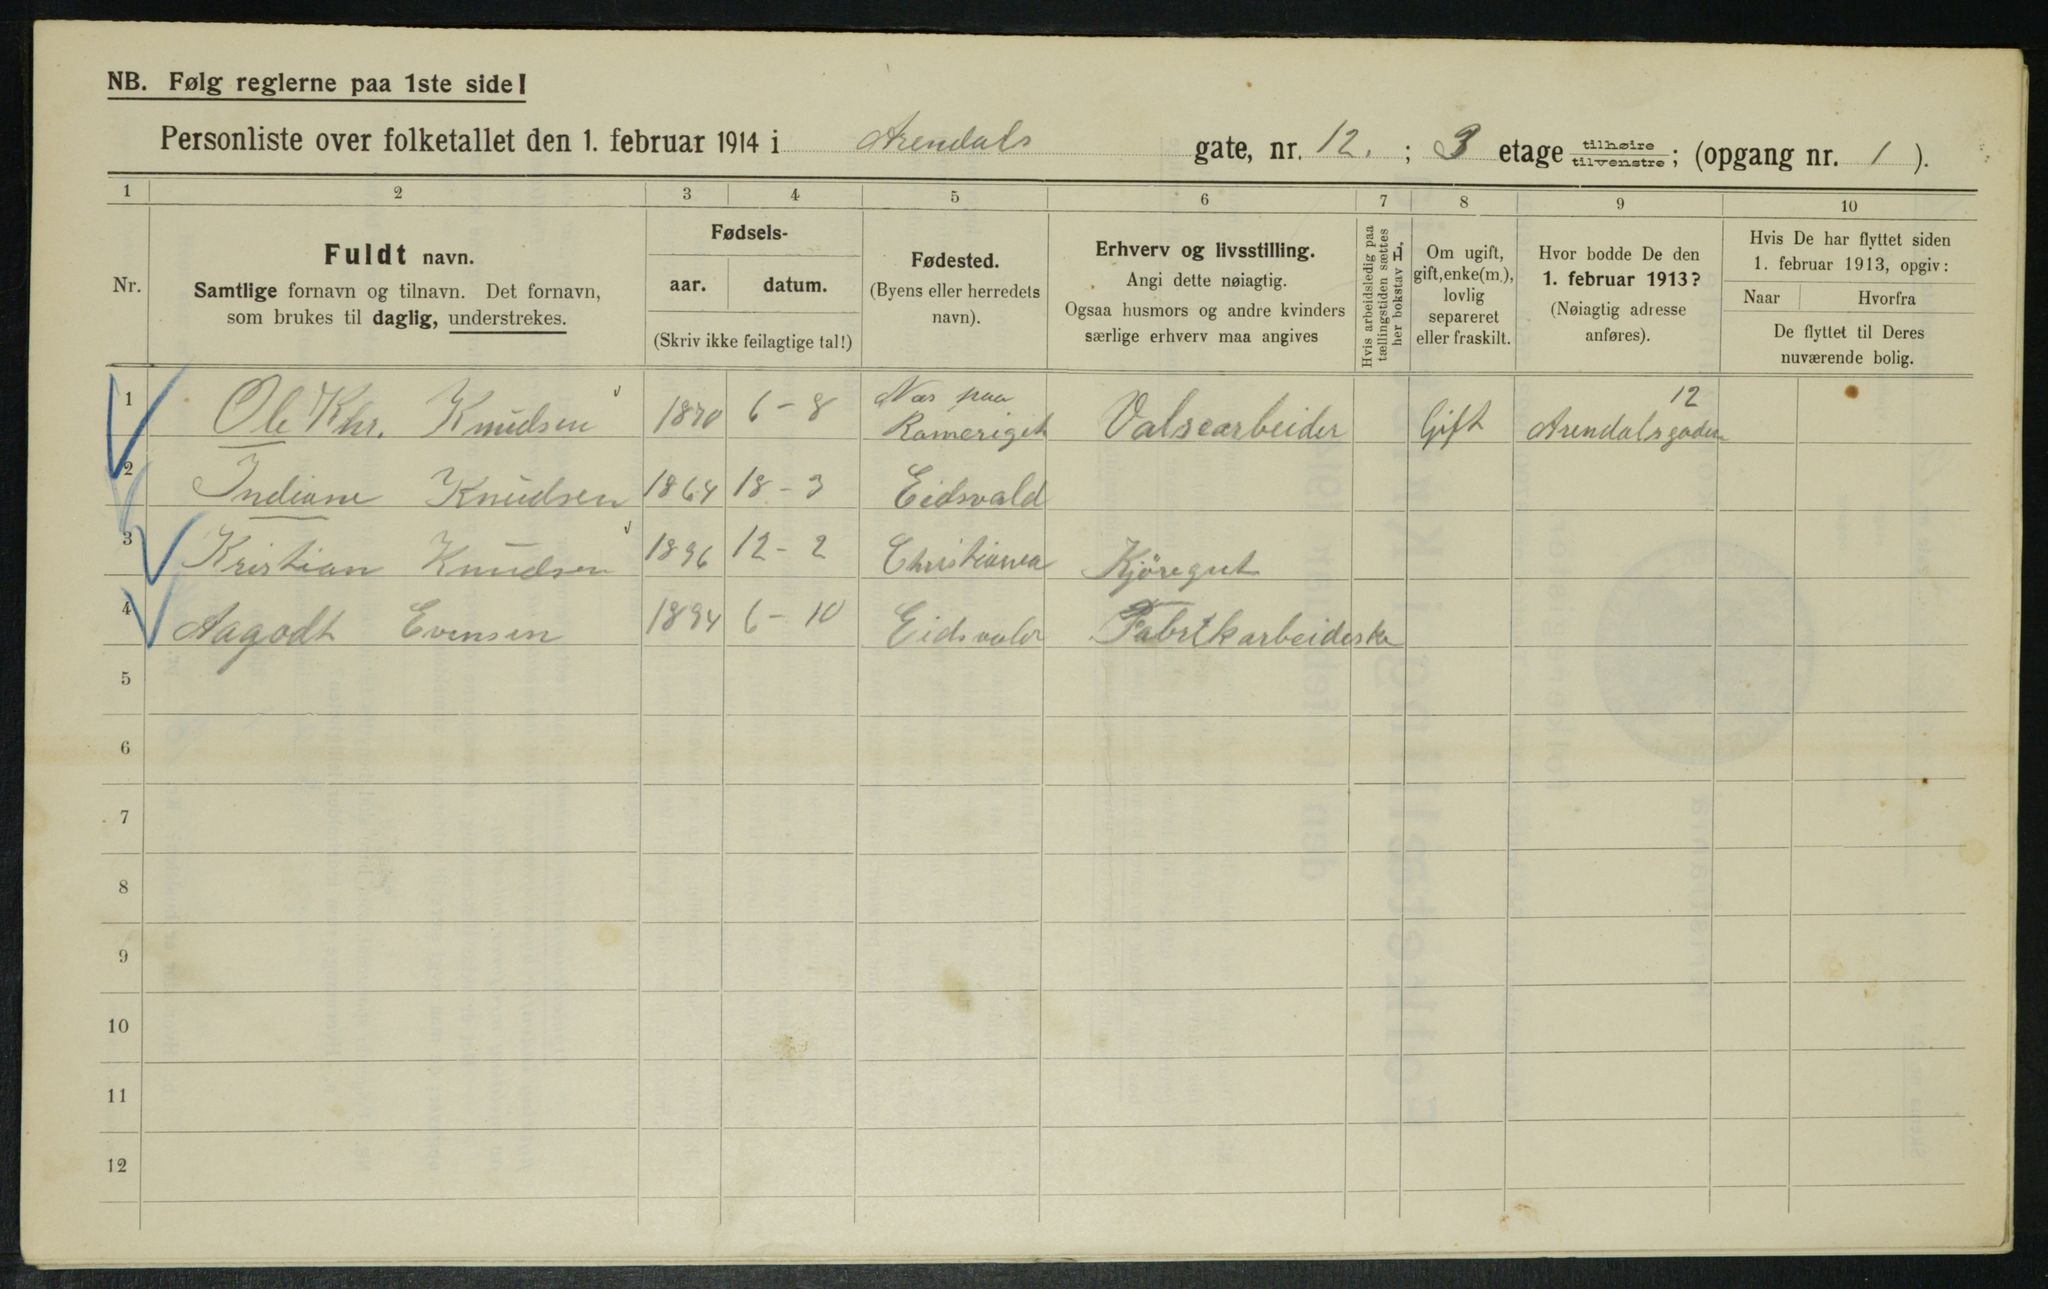 NB. Følg reglerne paa 1ste side!
Personliste over folketallet den 1. februar 1914 i Arendals gate, nr. 12. ; 3 etage tilhøire tilvenstre; (opgang nr. 1 ).
1 2 3 4 5 6 7 8 9 10
Nr.
Fuldt navn.
Samtlige fornavn og tilnavn. Det fornavn,
som brukes til daglig, understrekes.
Fødsels-
aar. datum.
(Skriv ikke feilagtige tal!)
Fødested.
(Byens eller herredets
navn).
Erhverv og livsstilling.
Angi dette nøiagtig.
Ogsaa husmors og andre kvinders
særlige erhverv maa angives
Hvis arbeidsledig paa
tællingstiden sættes
her bokstav L.
Om ugift,
gift, enke(m.),
lovlig
separeret
eller fraskilt.
Hvor bodde De den
1. februar 1913?
(Nøiagtig adresse
anføres).
Hvis De har flyttet siden
1. februar 1913, opgiv:
Naar Hvorfra
De flyttet til Deres
nuværende bolig.
1 Ole Khr. Knudsen 1870 6-8 Næs paa Romeriget Valsearbeider Gift Arendalsgaden 12
2 Indiane Knudsen 1864 18-3 Eidsvald
3 Kristian Knudsen 1896 12-2 Christiania Kjöregut
4 Aagodt Evensen 1894 6-10 Eidsvold Fabrikarbeiderske
5
6
7
8
9
10
11
12